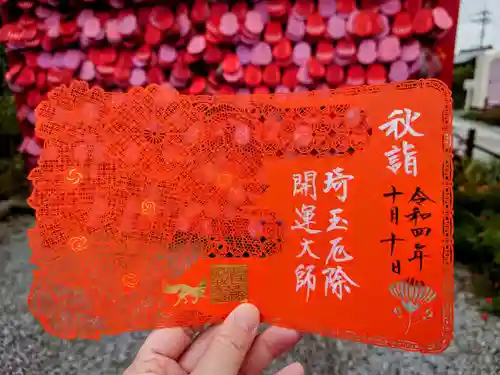 秋詣
令和四年
十月十一日
埼玉厄除
開運大師